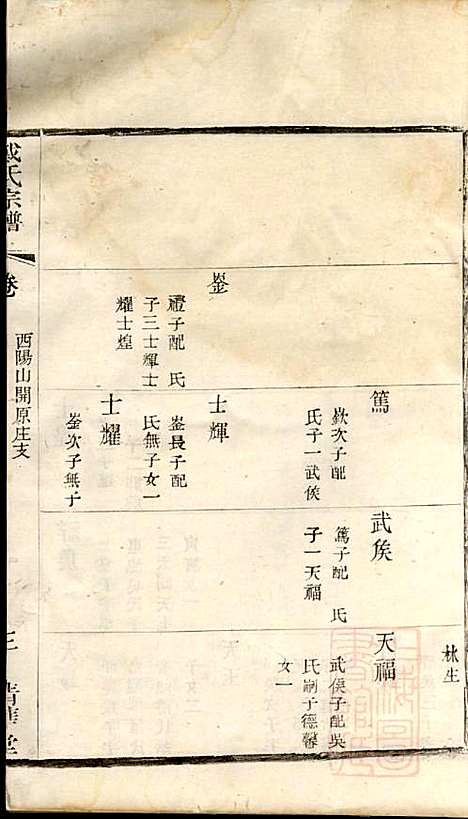 林生
篤
欽次子配
氏子一武侯
武侯
篤子配　氏
子一天福
天福
武侯子配吳
氏嗣子德馨
女一
崟
禮子配　氏
子三士輝士
耀士煌
士輝
崟長子配
氏無子女一
士耀
崟次子無子
氏宗譜
卷
酉陽山開原庄支
三
清華堂